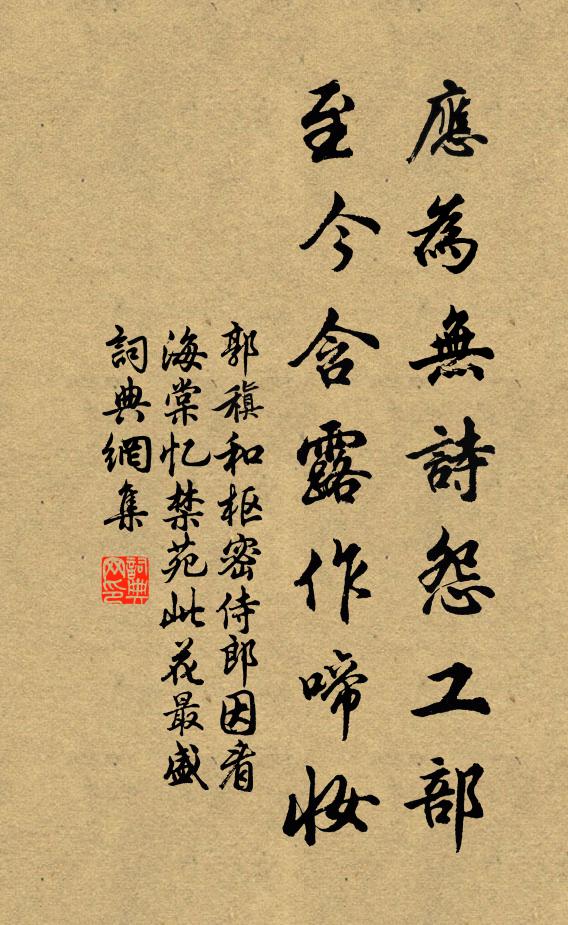 應為無詩怨工部
至今含露作啼妝
郭稹和枢密侍郎因看
海棠忆禁苑此花最盛
詞典網集
詞典網印